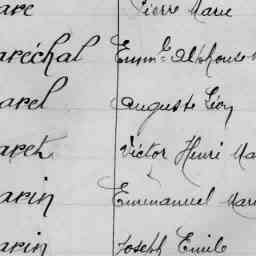 are Pierre Marie
aréchal Emm.el Alphonse
arel Auguste
aret Victor Henri Ma
arin Emmanuel Mari
arin Joseph Emile